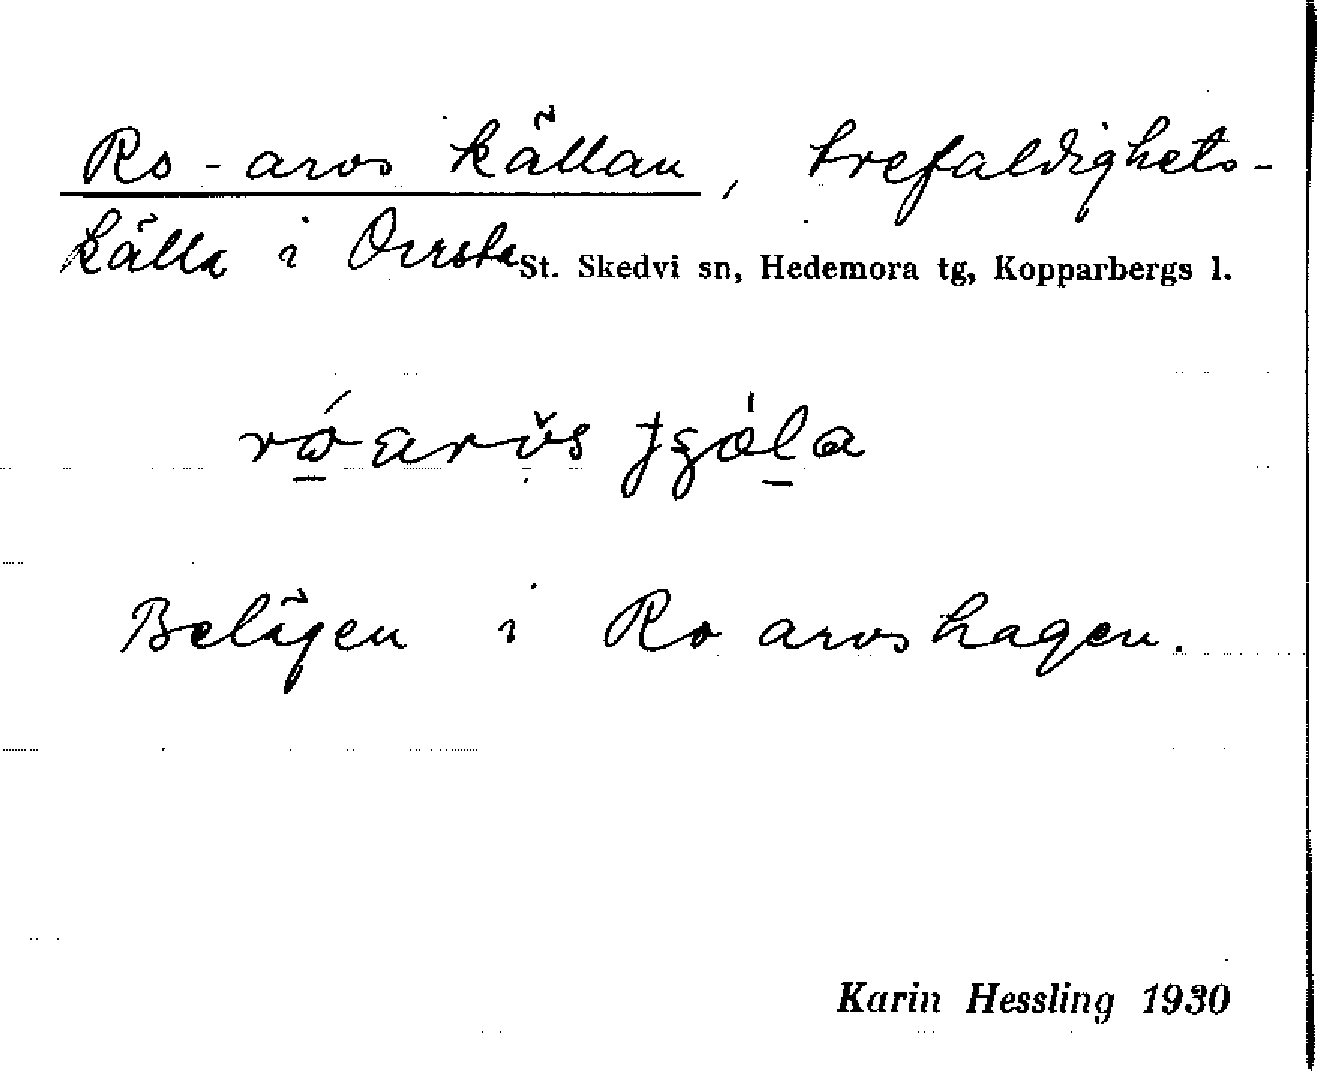 Ro-arvs källan, trefaldighets-
källa i Orrsta St. Skedvi sn, Hedemora tg, Kopparbergs l.
Belägen i Ro arvshagen.
Karin Hessling 1930